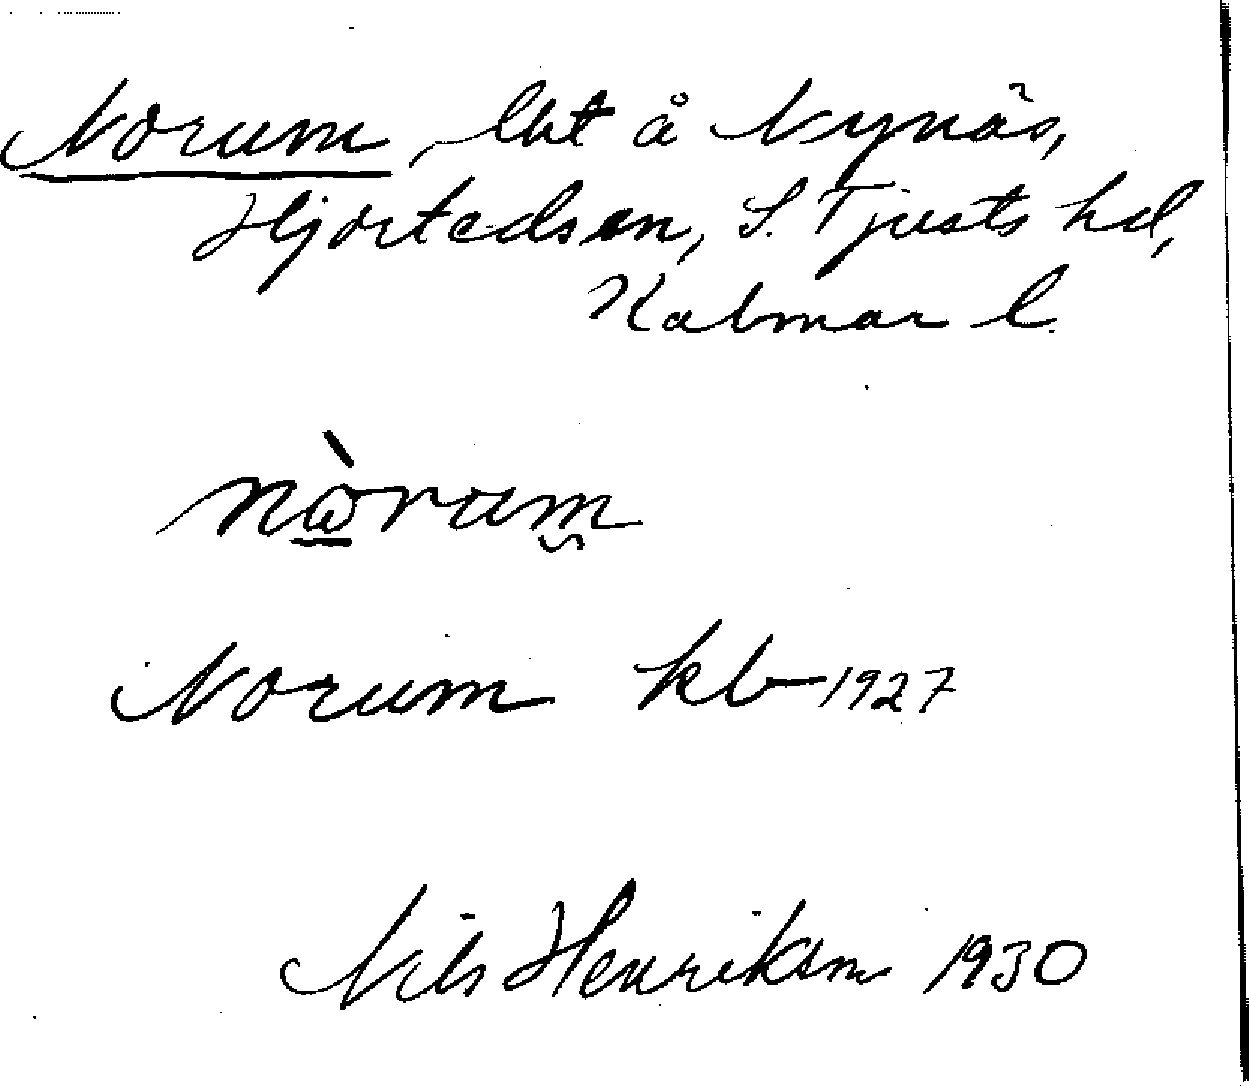 Norum, lht å Nynäs,
Hjorteds sn, S. Tjusts hd,
Kalmar l.
nò̱rum̮
Norum kb 1927
Nils Henrikson 1930